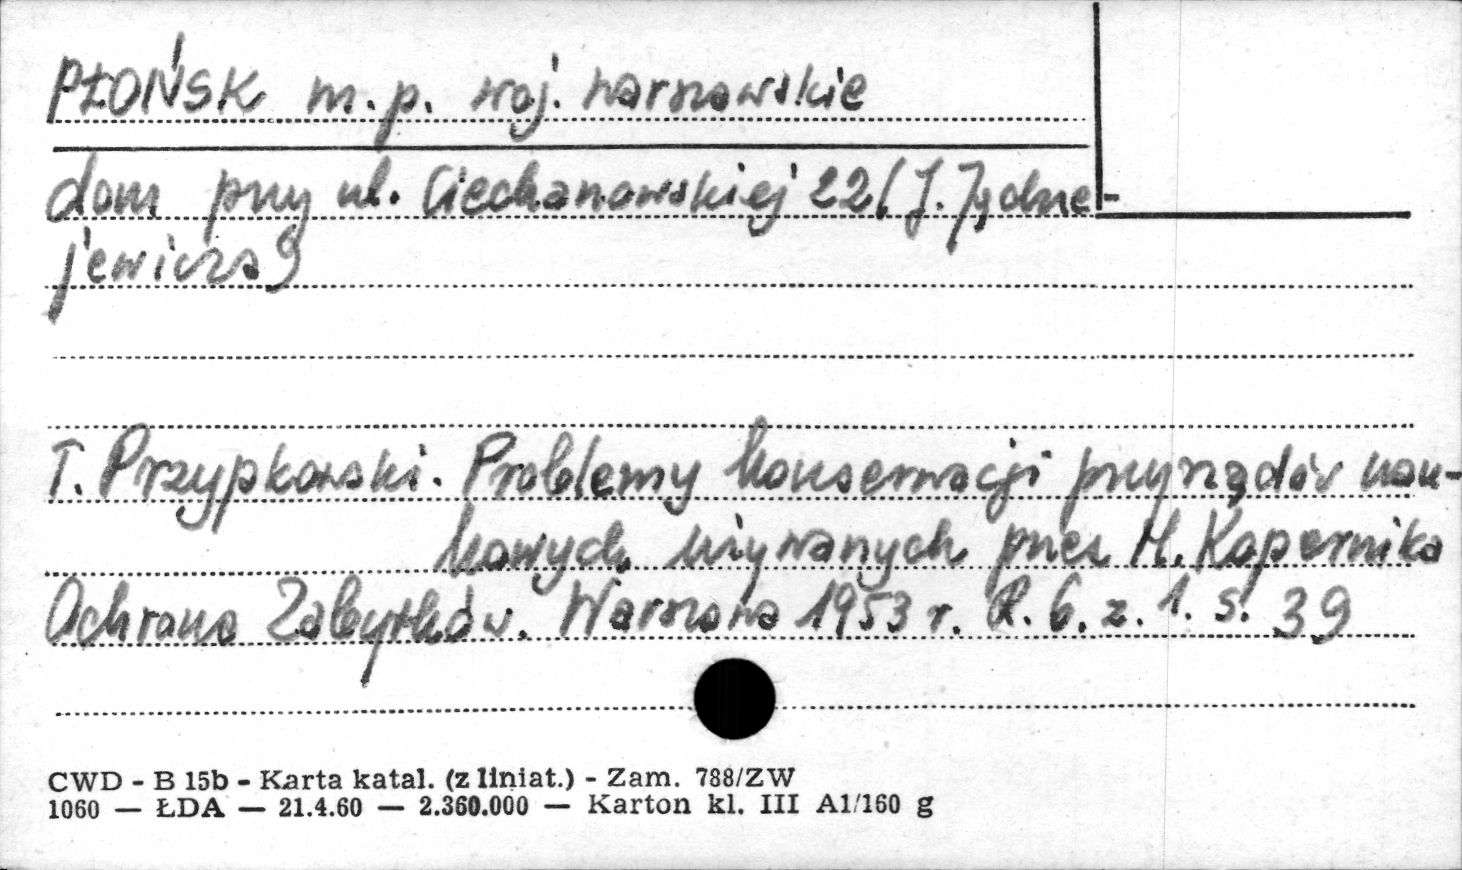 PŁOŃSK m.p. woj. warszawskie
dom przy ul. Ciechanowskiej 22 (J.
jewicza)
T. Przypkowski. Problemy konserwacji przyrządów nau-
kowych używanych przez M. Kopernika
Ochrona Zabytków. Warszawa 1953 r. R. 6. z. 1. s. 39
CWD - B 15b - Karta katal. (z liniat.) - Zam. 788/ZW
1060 — ŁDA — 21.4.60 — 2.360.000 — Karton kl. III A1/160 g